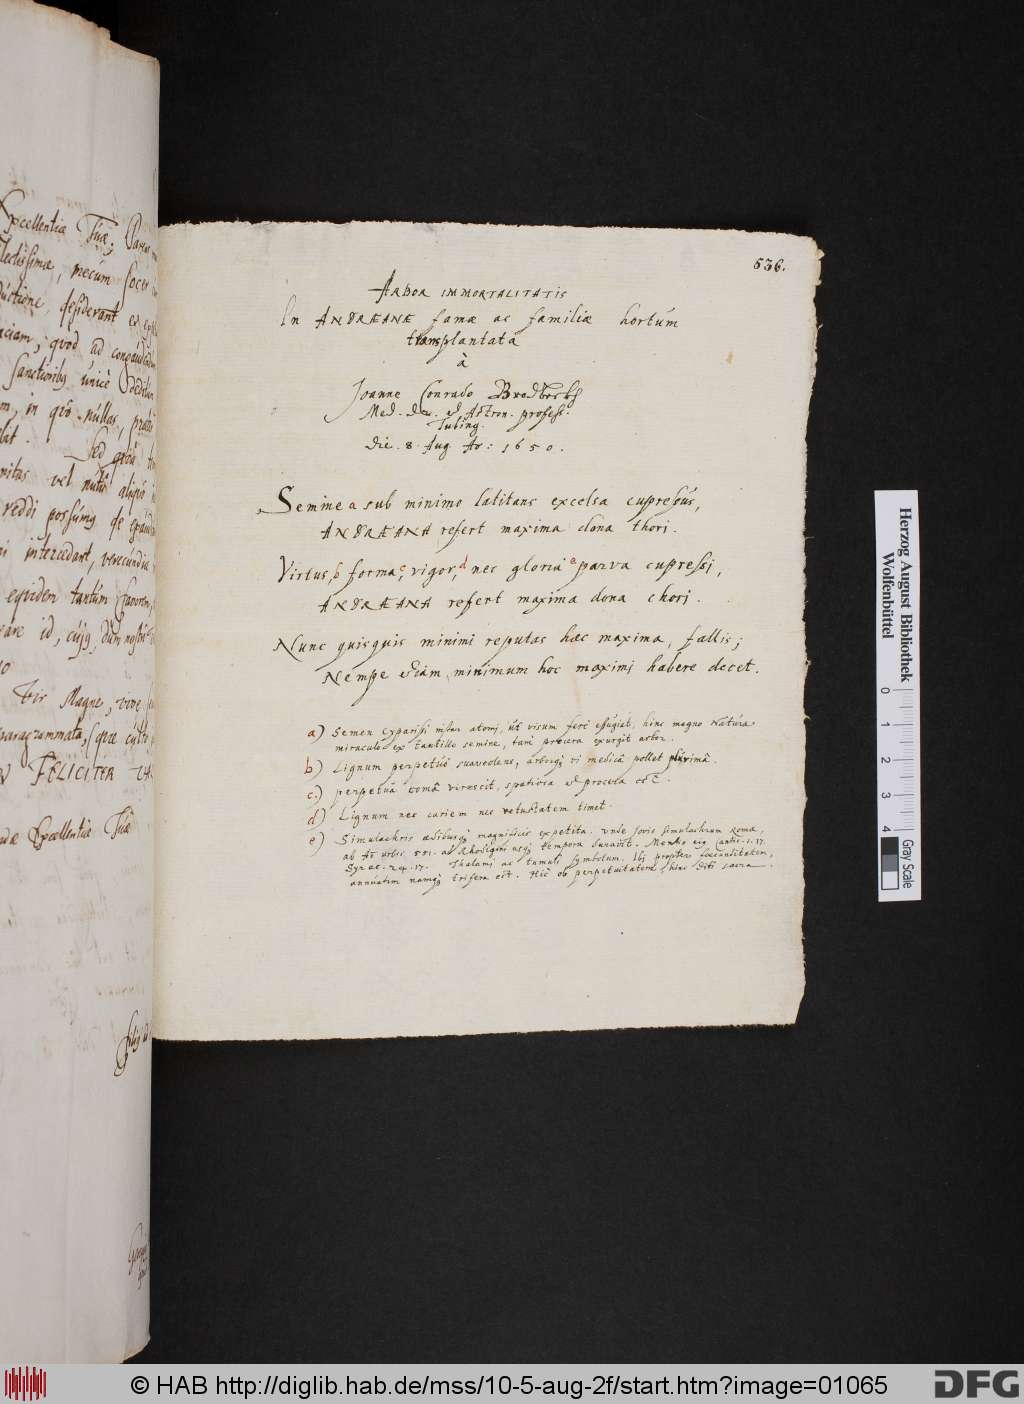 Excellentiæ Tuæ,
lectissimæ, mecum socer
ductione, desiderant
quod ad
sanctioribus unice
in quo nullas,
Sed
vel
reddi possumus de
intercedant, verecundia
equidem tantum
id, cujus, dum
Vir Magne, vive
paragrammata,
FELICITER
Excellentiæ Tuæ
536.
ARBOR IMMORTALITATIS
In ANDREÆANÆ famæ ac familiæ hortum
transplantata
à
Joanne Conrado Brodbeckh
Med. doct. et Astron. profess.
Tubing.
die. 8. Aug. Ao: 1650.
Semine a sub minimo latitans excelsa cupressus,
ANDREÆANA refert maxima dona thori.
Virtus, b forma, c vigor, d nec gloria e parva cupressi,
ANDREÆANA refert maxima dona chori.
Nunc quisquis minimi reputas hæc maxima, fallis;
Nempe etiam minimum hoc maximi habere decet.
a) Semen Cyparissi instar atomi, ut visum fere effugiat, hinc magno Naturæ
miraculo ex tantillo semine, tam procera exurgit arbor.
b) Lignum perpetuo suaveolens, arborque vi medica pollet plurimâ.
c) perpetuâ comâ virescit, speciosa et procera est.
d) Lignum nec cariem nec vetustatem timet.
e) Simulachris ædibusque magnificis expetita. Unde Jovis simulachrum Romæ,
ab Ao urbis 551. ad Rhodigini usque tempora duravit. Mentio ejus Cantic. 1. 17.
Syrac. 24. 17. Thalami ac tumuli symbolum. Ibi propter foecunditatem,
annuatim namque trifera est. Hic ob perpetuitatem, hinc Diti sacra.
Herzog August Bibliothek
Wolfenbüttel
0 1 2 3 4
Gray Scale
© HAB http://diglib.hab.de/mss/10-5-aug-2f/start.htm?image=01065
DFG